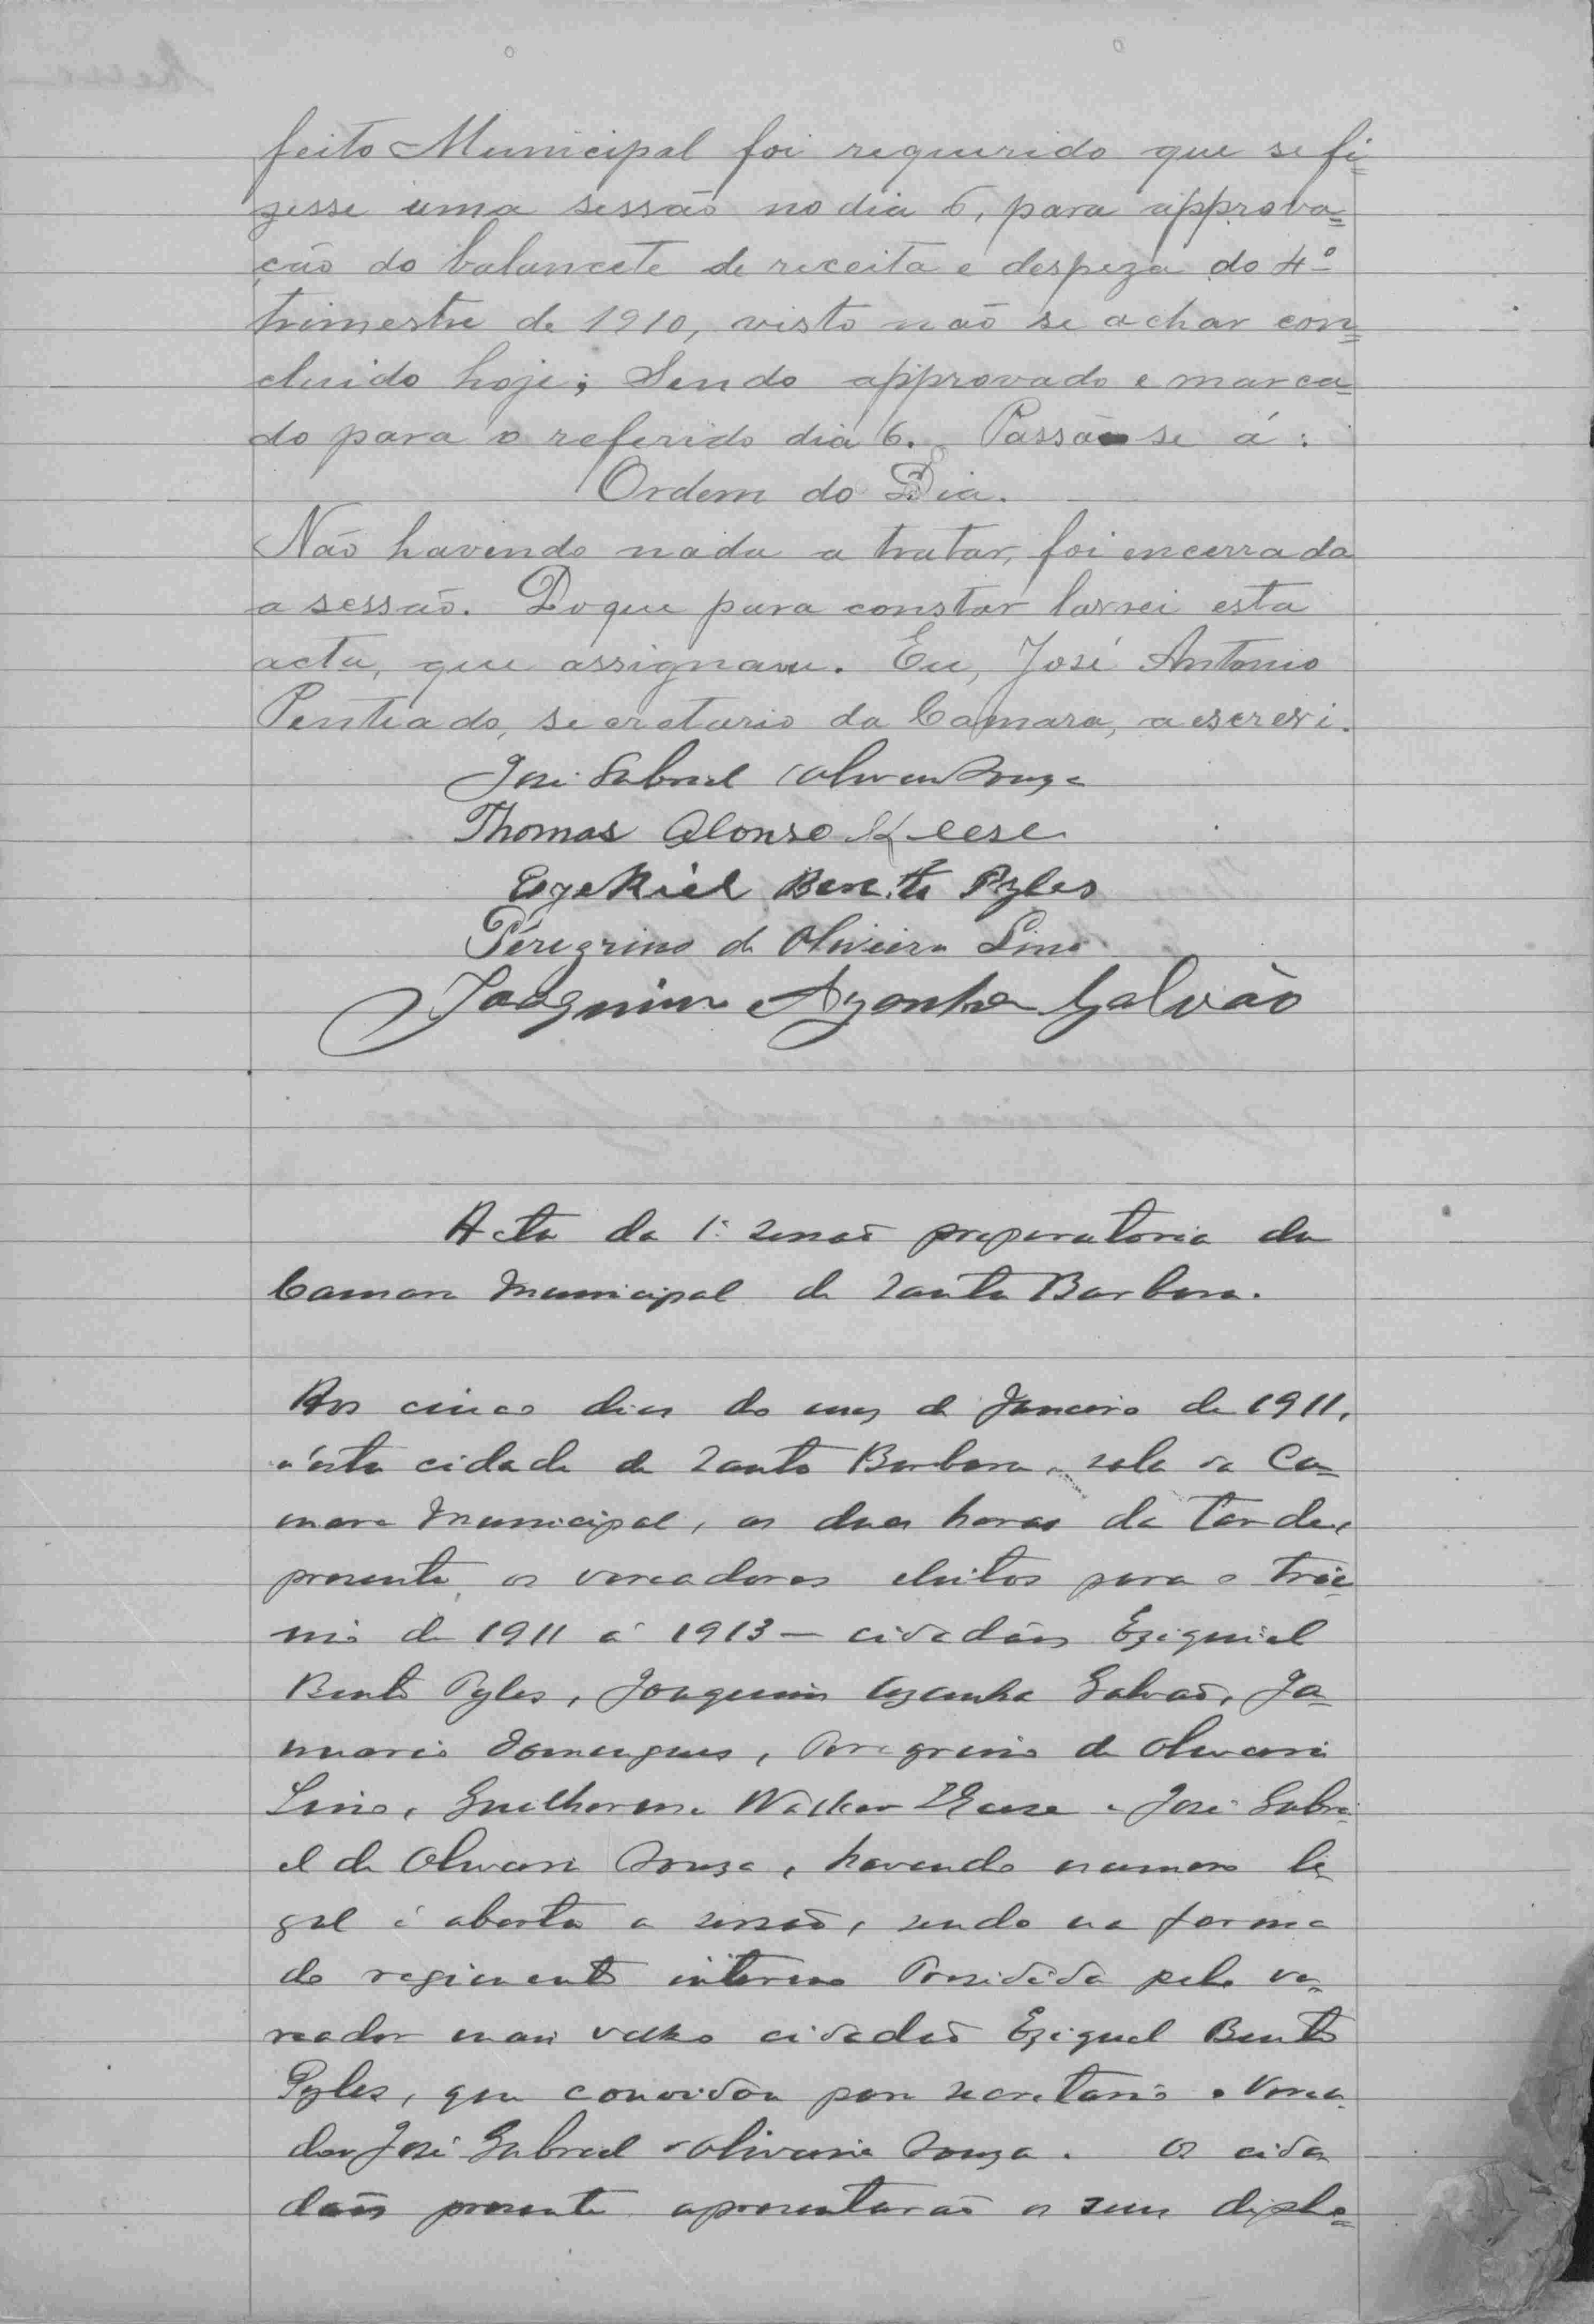 feito Municipal foi requerido que se fi=
zesse uma sessão no dia 6, para approva=
ção do balancete de receita e despeza do 4º
trimestre de 1910, visto não se achar con=
cluido hoje; Sendo approvado e marca=
do para o referido dia 6. Passão se á:
Ordem do Dia.
Não havendo nada a tratar, foi encerrada
a sessão. Do que para constar lavrei esta
acta, que assignam. Eu, José Antonio
Penteado, secretario da Camara, a escrevi.
José Gabriel Oliveira Souza
Thomas Alonso Keese
Ezekiel Bento Pyles
Peregrino de Oliveira Lino
Joaquim Azanha Galvão
Acta da 1ª sessaõ preparatoria da
Camara Municipal de Santa Barbara.
Aos cinco dias do mez de Janeiro de 1911,
n'esta cidade de Santa Barbara, sala da Ca=
mara Municipal, as duas horas da tarde,
presente os vereadores eleitos para o trie=
nio de 1911 á 1913 — cidadãos Eziquiel
Bento Pyles, Joaquim Azanha Galvaõ, Ja=
nuario Domingues, Peregrino de Oliveira
Lino, Guilherme Walker Keese e José Gabri=
el de Oliveira Souza, havendo numero le=
gal é aberta a sessaõ, sendo na forma
do regimento interno Presidida pelo ve=
reador mais velho cidadaõ Eziquel Bento
Pyles, que convidou para secretario o Verea=
dor José Gabriel Oliveira Souza. Os cida
daõs presente apresentaraõ os seus diplo=